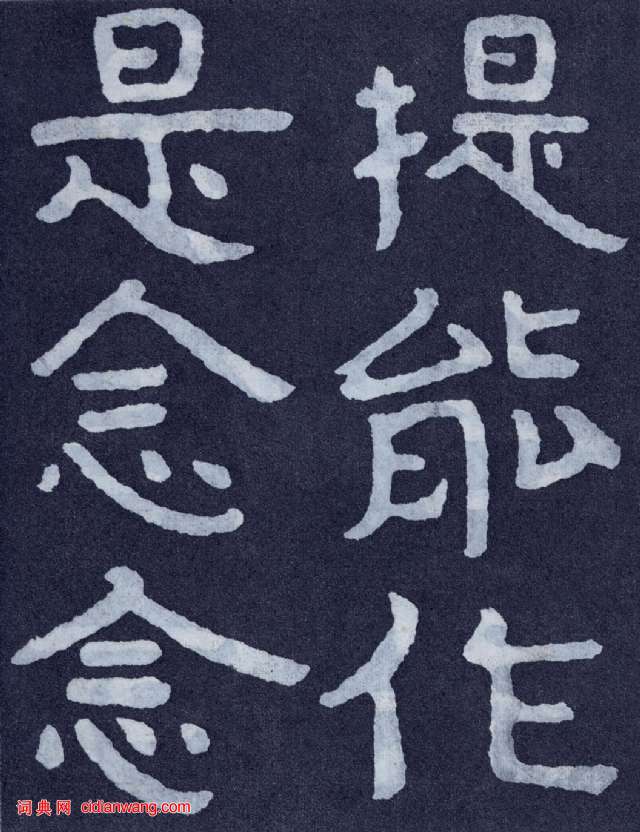 提能作
是念念
词典网 cidianwang.com